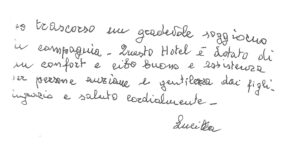 ho trascorso un gradevole soggiorno
in compagnia - Questo Hotel è dotato di
un confort e cibo buono e assistenza
per persone anziane e gentilezza dai figli-
ingrazio e saluto cordialmente -
Lucilla